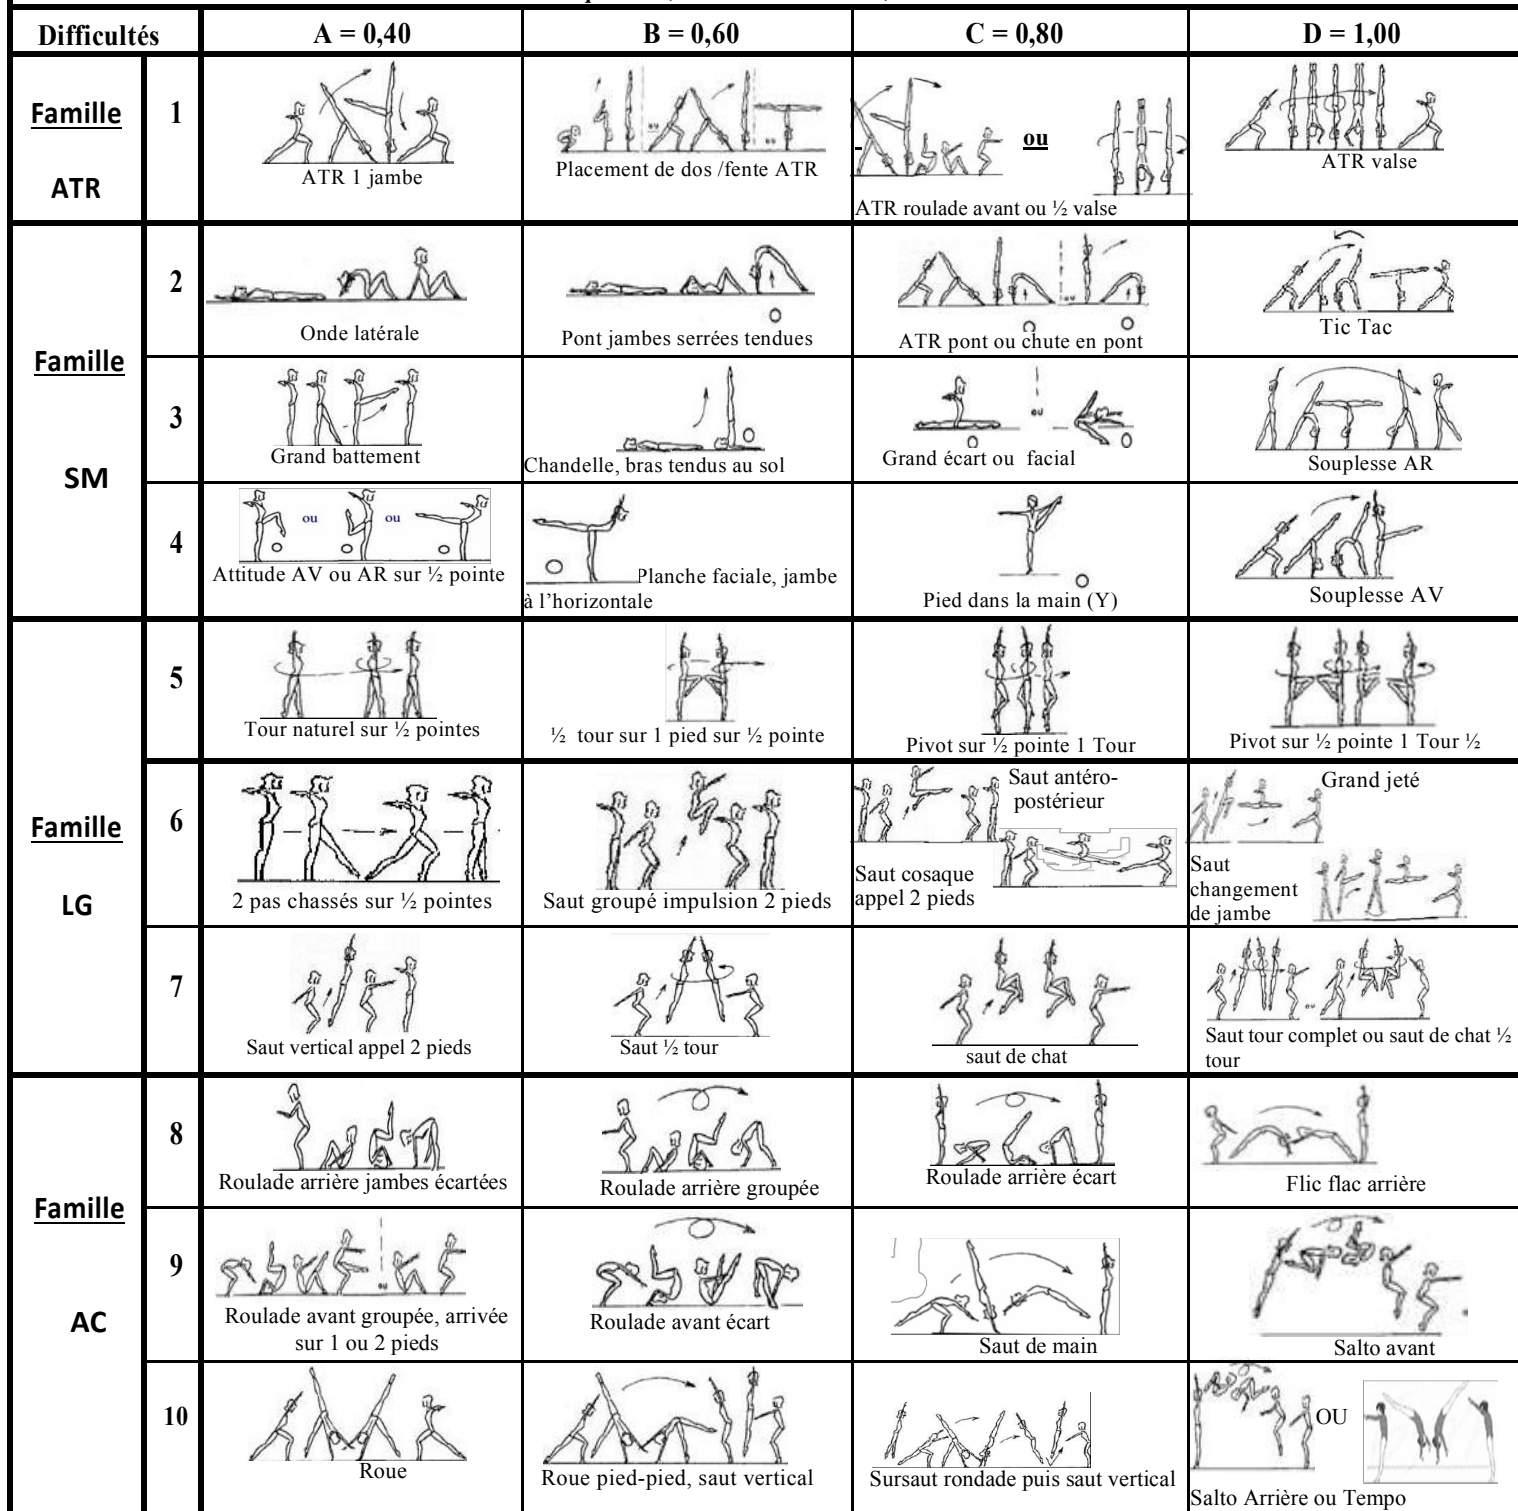 Difficultés A = 0,40 B = 0,60 C = 0,80 D = 1,00
Famille
ATR
1
ATR 1 jambe
ou
ou
Placement de dos /fente ATR
ou
ATR roulade avant ou ½ valse
ATR valse
Famille
SM
2
Onde latérale
Pont jambes serrées tendues
ou
ATR pont ou chute en pont
Tic Tac
3
Grand battement
Chandelle, bras tendus au sol
ou
Grand écart ou facial
Souplesse AR
4
ou ou
Attitude AV ou AR sur ½ pointe
Planche faciale, jambe
à l’horizontale
Pied dans la main (Y)
Souplesse AV
Famille
LG
5
Tour naturel sur ½ pointes
½ tour sur 1 pied sur ½ pointe
Pivot sur ½ pointe 1 Tour
Pivot sur ½ pointe 1 Tour ½
6
2 pas chassés sur ½ pointes
Saut groupé impulsion 2 pieds
Saut antéro-
postérieur
Saut cosaque
appel 2 pieds
Grand jeté
Saut
changement
de jambe
7
Saut vertical appel 2 pieds
Saut ½ tour
saut de chat
ou
Saut tour complet ou saut de chat ½
tour
Famille
AC
8
Roulade arrière jambes écartées
Roulade arrière groupée
Roulade arrière écart
Flic flac arrière
9
ou
Roulade avant groupée, arrivée
sur 1 ou 2 pieds
Roulade avant écart
Saut de main
Salto avant
10
Roue
Roue pied-pied, saut vertical
Sursaut rondade puis saut vertical
OU
Salto Arrière ou Tempo